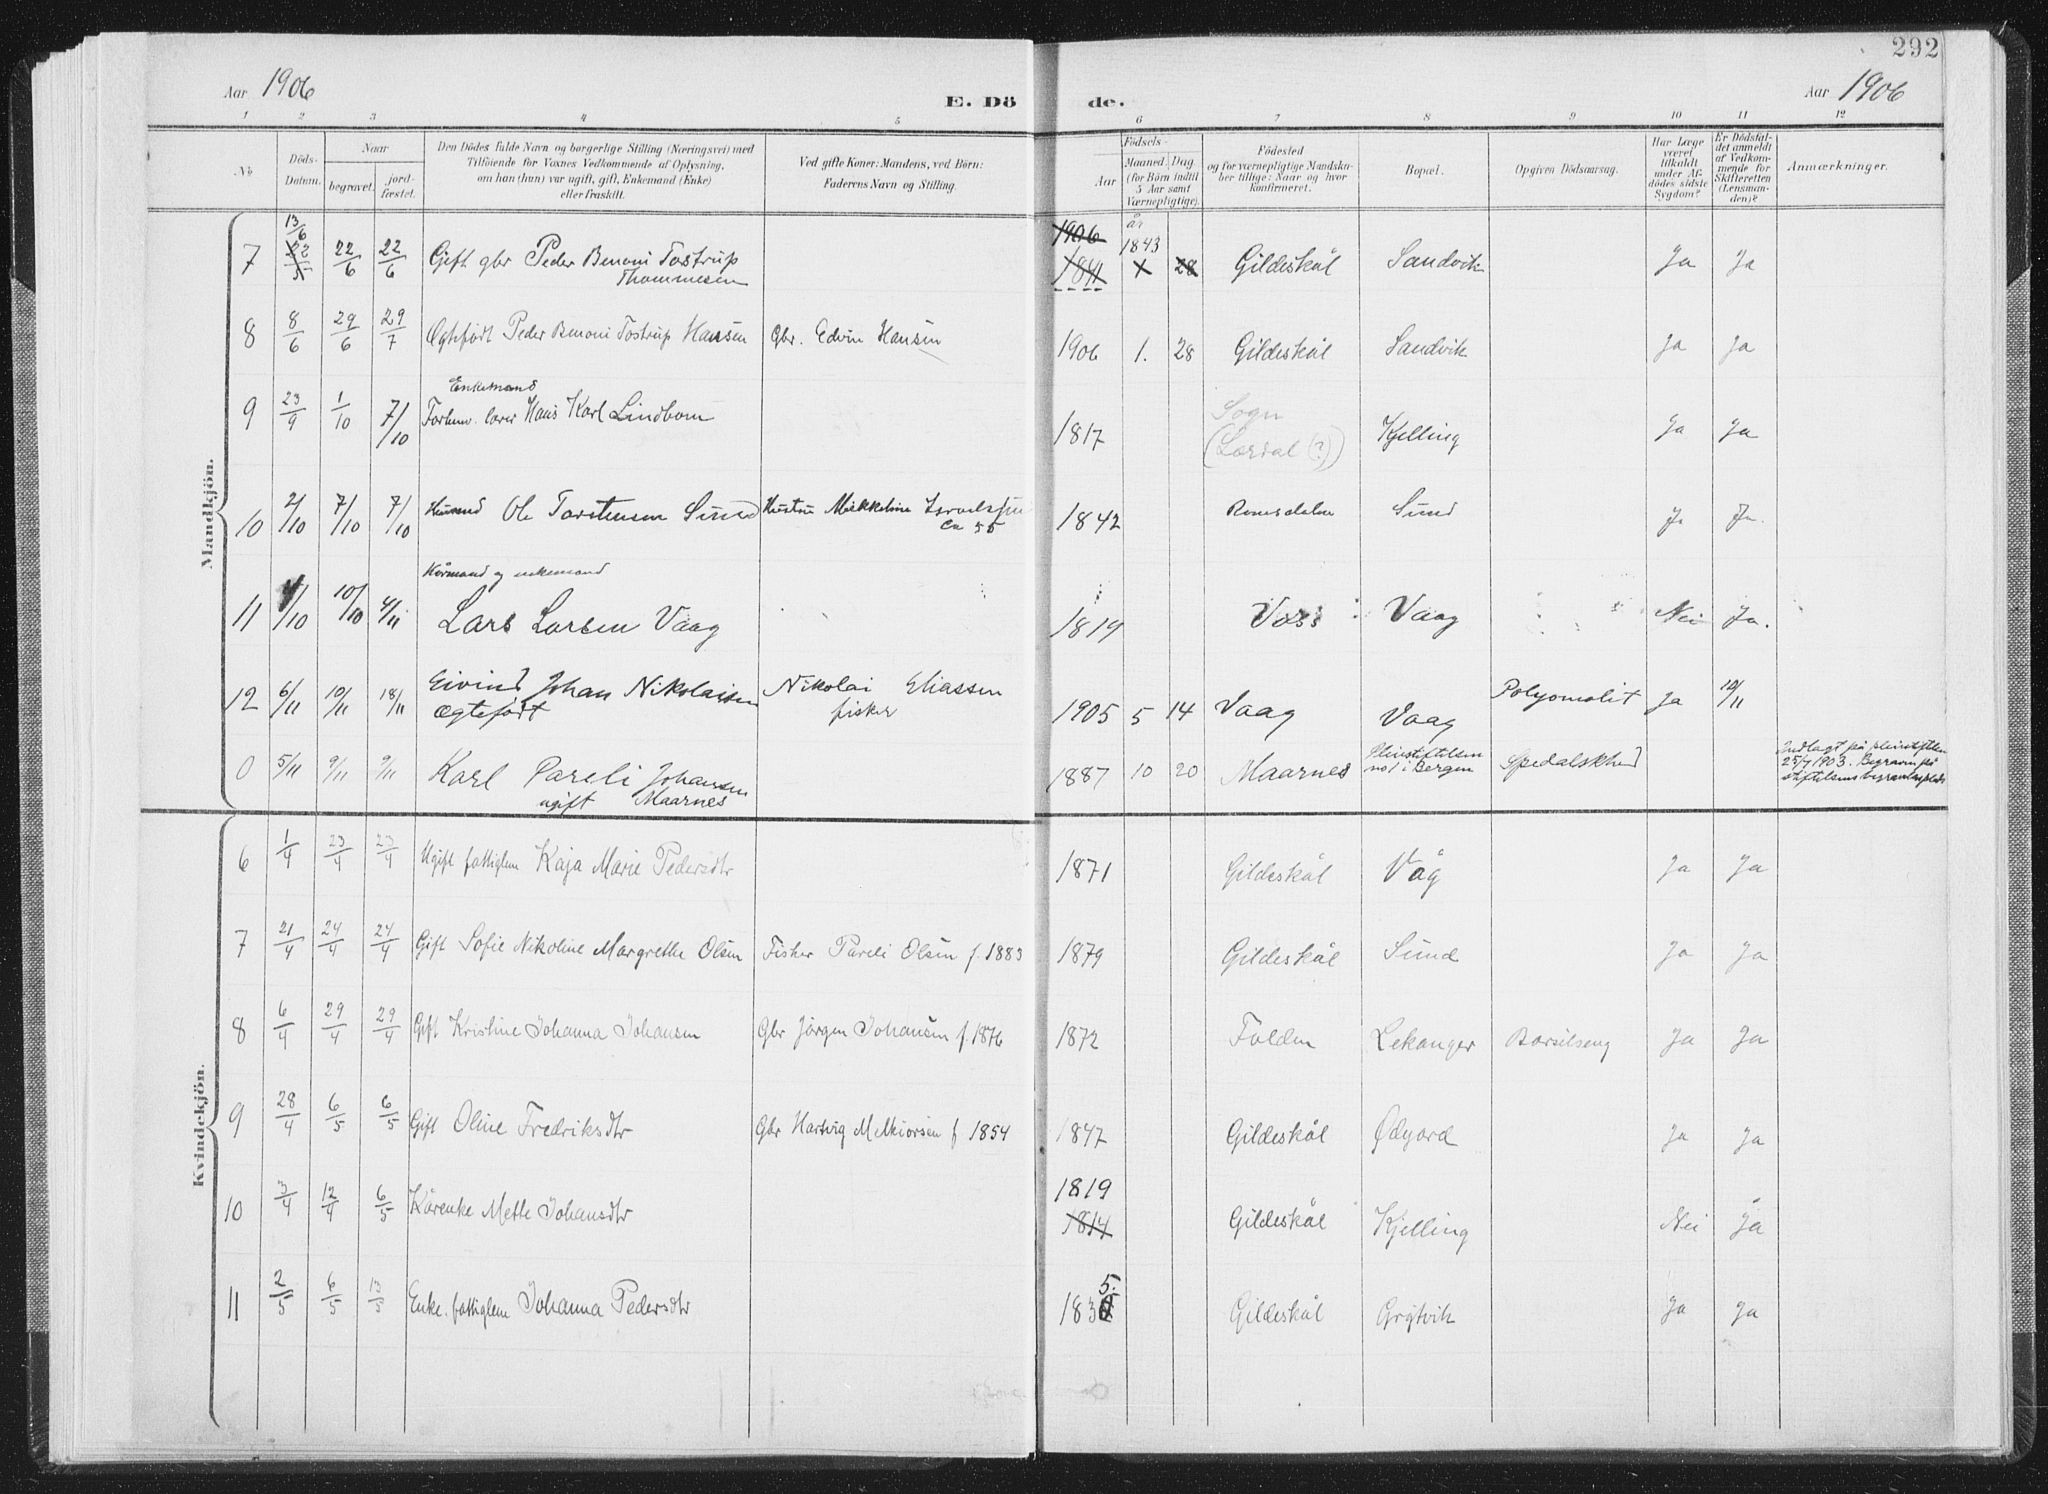 292
Aar 1906
E. Dö
de.
Aar 1906
1 2 3 4 5 6 7 8 9 10 11 12
No
Döds-
Datum.
Naar
begravet.
jord-
fæstet.
Den Dödes fulde Navn og borgerlige Stilling (Næringsvei) med
Tilföiende for Voxnes Vedkommende af Oplysning,
om han (hun) var ugift, gift, Enkemand (Enke)
eller fraskilt.
Ved gifte Koner: Mandens, ved Börn:
Faderens Navn og Stilling.
Födsels-
Aar
Maaned. Dag.
(for Börn indtil
5 Aar samt
Værnepligtige).
Födested
og for værnepligtige Mandska-
ber tillige: Naar og hvor
konfirmeret.
Bopæl.
Opgiven Dödsaarsag.
Har Læge
været
tilkaldt
under Af-
dödes sidste
Sygdom?
Er Dödsfal-
det anmeldt
af Vedkom-
mende for
Skifteretten
(Lensman-
den)?
Anmærkninger.
Mandkjön.
7 13/6 22/5 22/6 22/6 Gift gbr Peder Benoni Tostrup Thommesen 1906 1841 år 1843 x 28 Gildeskål Sandvik Ja Ja
8 8/6 29/6 29/7 Ogtefødt Peder Benoni Tostrup Hansen Gbr. Edvin Hansen 1906 1. 28 Gildeskål Sandvik Ja Ja
Enkemand
9 23/9 1/10 7/10 Forhenv. lærer Hans Karl Lindbom 1817 Sogn (Lærdal (?)) Kjelling Ja Ja
10 2/10 7/10 7/10 Ole Torstensen Sund Hustru Mikkeline Israelsen ca 55 1842 Romsdalen Sund Ja Ja.
Kårmand og enkemand
11 4/10 10/10 4/11 Lars Larsen Vaag 1819 Voss Vaag Nei Ja.
12 6/11 10/11 18/11 Eivind Johan Nikolaisen Ægtefødt Nikolai Eliassen fisker 1905 5 14 Vaag Vaag Polyomolit Ja 10/11
0 5/11 9/11 9/11 Karl Pareli Johansen ugift Maarnes 1887 10 20 Maarnes Pleiestiftelsen no 1 i Bergen Spedalskhed Indlagt på pleiestiftelsen 25/7 1903. Begraven på stiftelsens begravelsesplads
Kvindekjön.
6 1/4 23/4 23/4 Ugift fattiglem Kaja Marie Pedersdtr 1871 Gildeskål Våg Ja Ja
7 21/4 24/4 24/4 Gift Sofie Nikoline Margrethe Olsen Fisker Pareli Olsen f. 1883 1879 Gildeskål Sund Ja Ja
8 6/4 29/4 29/4 Gift Kristine Johanna Johansen Gbr Jørgen Johansen f. 1876 1872 Folden Lekanger Barselseng Ja Ja
9 28/4 6/5 6/5 Gift Oline Fredriksdtr Gbr Hartvig Melkiorsen f 1854 1847 Gildeskål Ødejord Ja Ja
10 3/4 12/4 6/5 Kårenke Mette Johansdtr 1819 1814 Gildeskål Kjelling Nei Ja
11 2/5 6/5 13/5 Enke. fattiglem Johanna Pedersdtr 1835. Gildeskål Grytvik Ja Ja